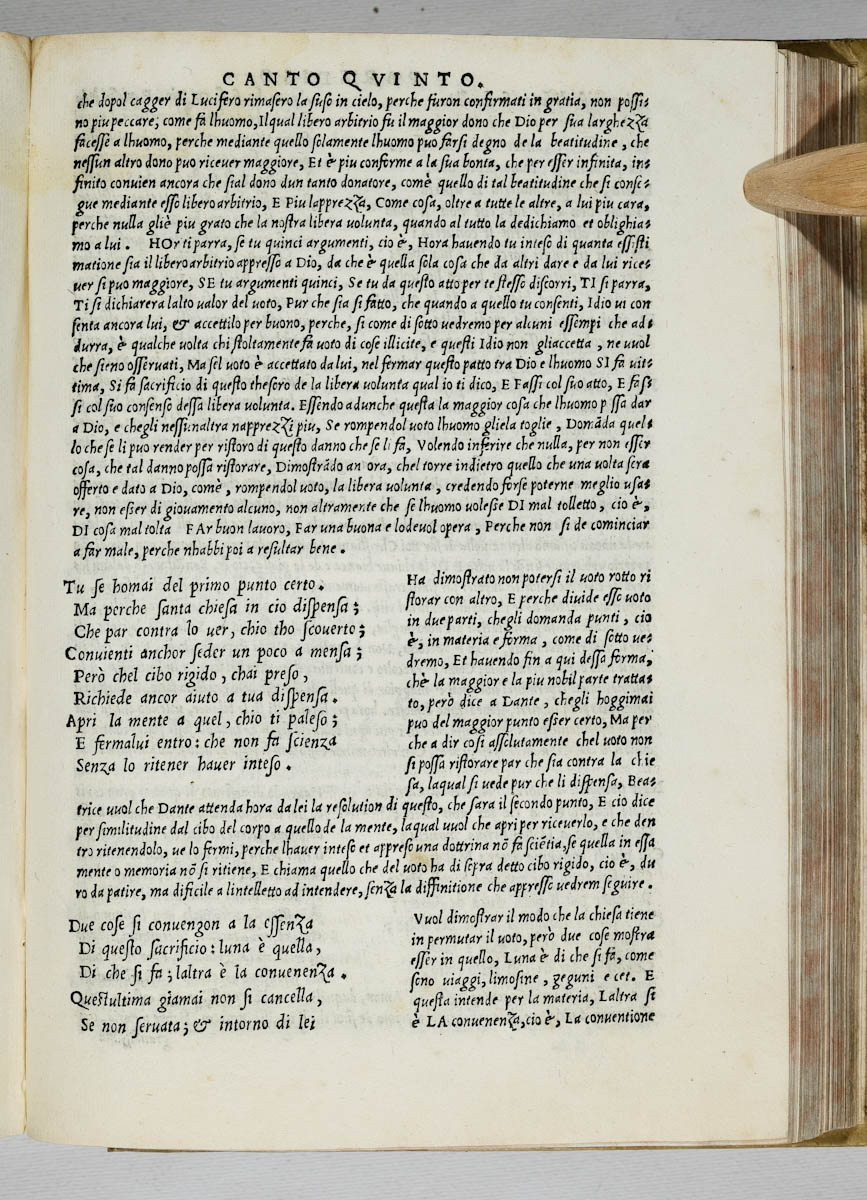 CANTO QVINTO.
che dopol cagger di Lucifero rimasero la suso in cielo, perche furon confirmati in gratia, non possi-
no piu peccare; come fa lhuomo, Il qual libero arbitrio fu il maggior dono che Dio per sua larghezza
facesse a lhuomo, perche mediante quello solamente lhuomo puo farsi degno de la beatitudine, che
nessun altro dono puo riceuer maggiore, Et è piu conforme a la sua bonta, che per esser infinita, in-
finito conuien ancora che sial dono dun tanto donatore, com'è quello di tal beatitudine che si conse-
gue mediante esso libero arbitrio, E PIu lapprezza, Come cosa, oltre a tutte le altre, a lui piu cara,
perche nulla gliè piu grato che la nostra libera volunta, quando al tutto la dedichiamo et oblighia-
mo a lui. HOr ti parra, se tu quinci argumenti, cio è, Hora hauendo tu inteso di quanta essisti
matione sia il libero arbitrio appresso a Dio, da che è quella sola cosa che da altri dare e da lui rice-
uer si puo maggiore, SE tu argumenti quinci, Se tu da questo atto per te stesso discorri, TI si parra,
Ti si dichiarera lalto ualor del uoto, Pur che sia si fatto, che quando a quello tu consenti, Idio ui con
senta ancora lui, & accettilo per buono, perche, si come di sotto uedremo per alcuni essempi che ad-
durra, è qualche uolta chi stoltamente fa uoto di cose illicite, e questi Idio non gliaccetta, ne uuol
che sieno osseruati, Ma sel uoto è accettato da lui, nel fermar questo patto tra Dio e lhuomo SI fa uit-
tima, Si fa sacrificio di questo thesoro de la libera uolunta qual io ti dico, E FAssi col suo atto, E fas-
si col suo consenso dessa libera uolunta. Essendo adunche questa la maggior cosa che lhuomo p ssa dar
a Dio, e chegli nessunaltra napprezzi piu, Se rompendol uoto lhuomo gliela toglie, Domāda quel-
lo che se li puo render per ristoro di questo danno che se li fa, Volendo inferire che nulla, per non esser
cosa, che tal danno possa ristorare, Dimostrādo an ora, chel torre indietro quello che una uolta sera
offerto e dato a Dio, com'è, rompendol uoto, la libera uolunta, credendo forse poterne meglio usa-
re, non esser di giouamento alcuno, non altramente che se lhuomo uolesse DI mal tolletto, cio è,
DI cosa mal tolta FAr buon lauoro, Far una buona e lodeuol opera, Perche non si de cominciar
a far male, perche nhabbi poi a resultar bene.
Tu se homai del primo punto certo.
Ma perche santa chiesa in cio dispensa;
Che par contra lo uer, chio tho scouerto;
Conuienti anchor seder un poco a mensa;
Però chel cibo rigido, chai preso,
Richiede ancor aiuto a tua dispensa.
Apri la mente a quel, chio ti paleso;
E fermalui entro: che non fa scienza
Senza lo ritener hauer inteso.
Ha dimostrato non potersi il uoto rotto ri
storar con altro, E perche diuide esso uoto
in due parti, chegli domanda punti, cio
è, in materia e forma, come di sotto ue-
dremo, Et hauendo fin a qui dessa forma,
chè la maggior e la piu nobil parte tratta-
to, però dice a Dante, chegli hoggimai
puo del maggior punto esser certo, Ma per
che a dir cosi assolutamente chel uoto non
si possa ristorare par che sia contra la chie
sa, laqual si uede pur che li dispensa, Bea-
trice uuol che Dante attenda hora da lei la resolution di questo, che sara il secondo punto, E cio dice
per similitudine dal cibo del corpo a quello de la mente, laqual uuol che apri per riceuerlo, e che den
tro ritenendolo, ue lo fermi, perche lhauer inteso et appreso una dottrina nō fa sciētia, se quella in essa
mente o memoria nō si ritiene, E chiama quello che del uoto ha di sopra detto cibo rigido, cio è, du
ro da patire, ma dificile a lintelletto ad intendere, senza la diffinitione che appresso uedrem seguire.
Due cose si conuengon a la essenza
Di questo sacrificio: luna è quella,
Di che si fa; laltra è la conuenenza.
Questultima giamai non si cancella,
Se non seruata; & intorno di lei
Vuol dimostrar il modo che la chiesa tiene
in permutar il uoto, però due cose mostra
esser in quello, Luna è di che si fa, come
sono uiaggi, limosine, gegiuni e cet. E
questa intende per la materia, Laltra si
è LA conuenenza, cio è, La conuentione